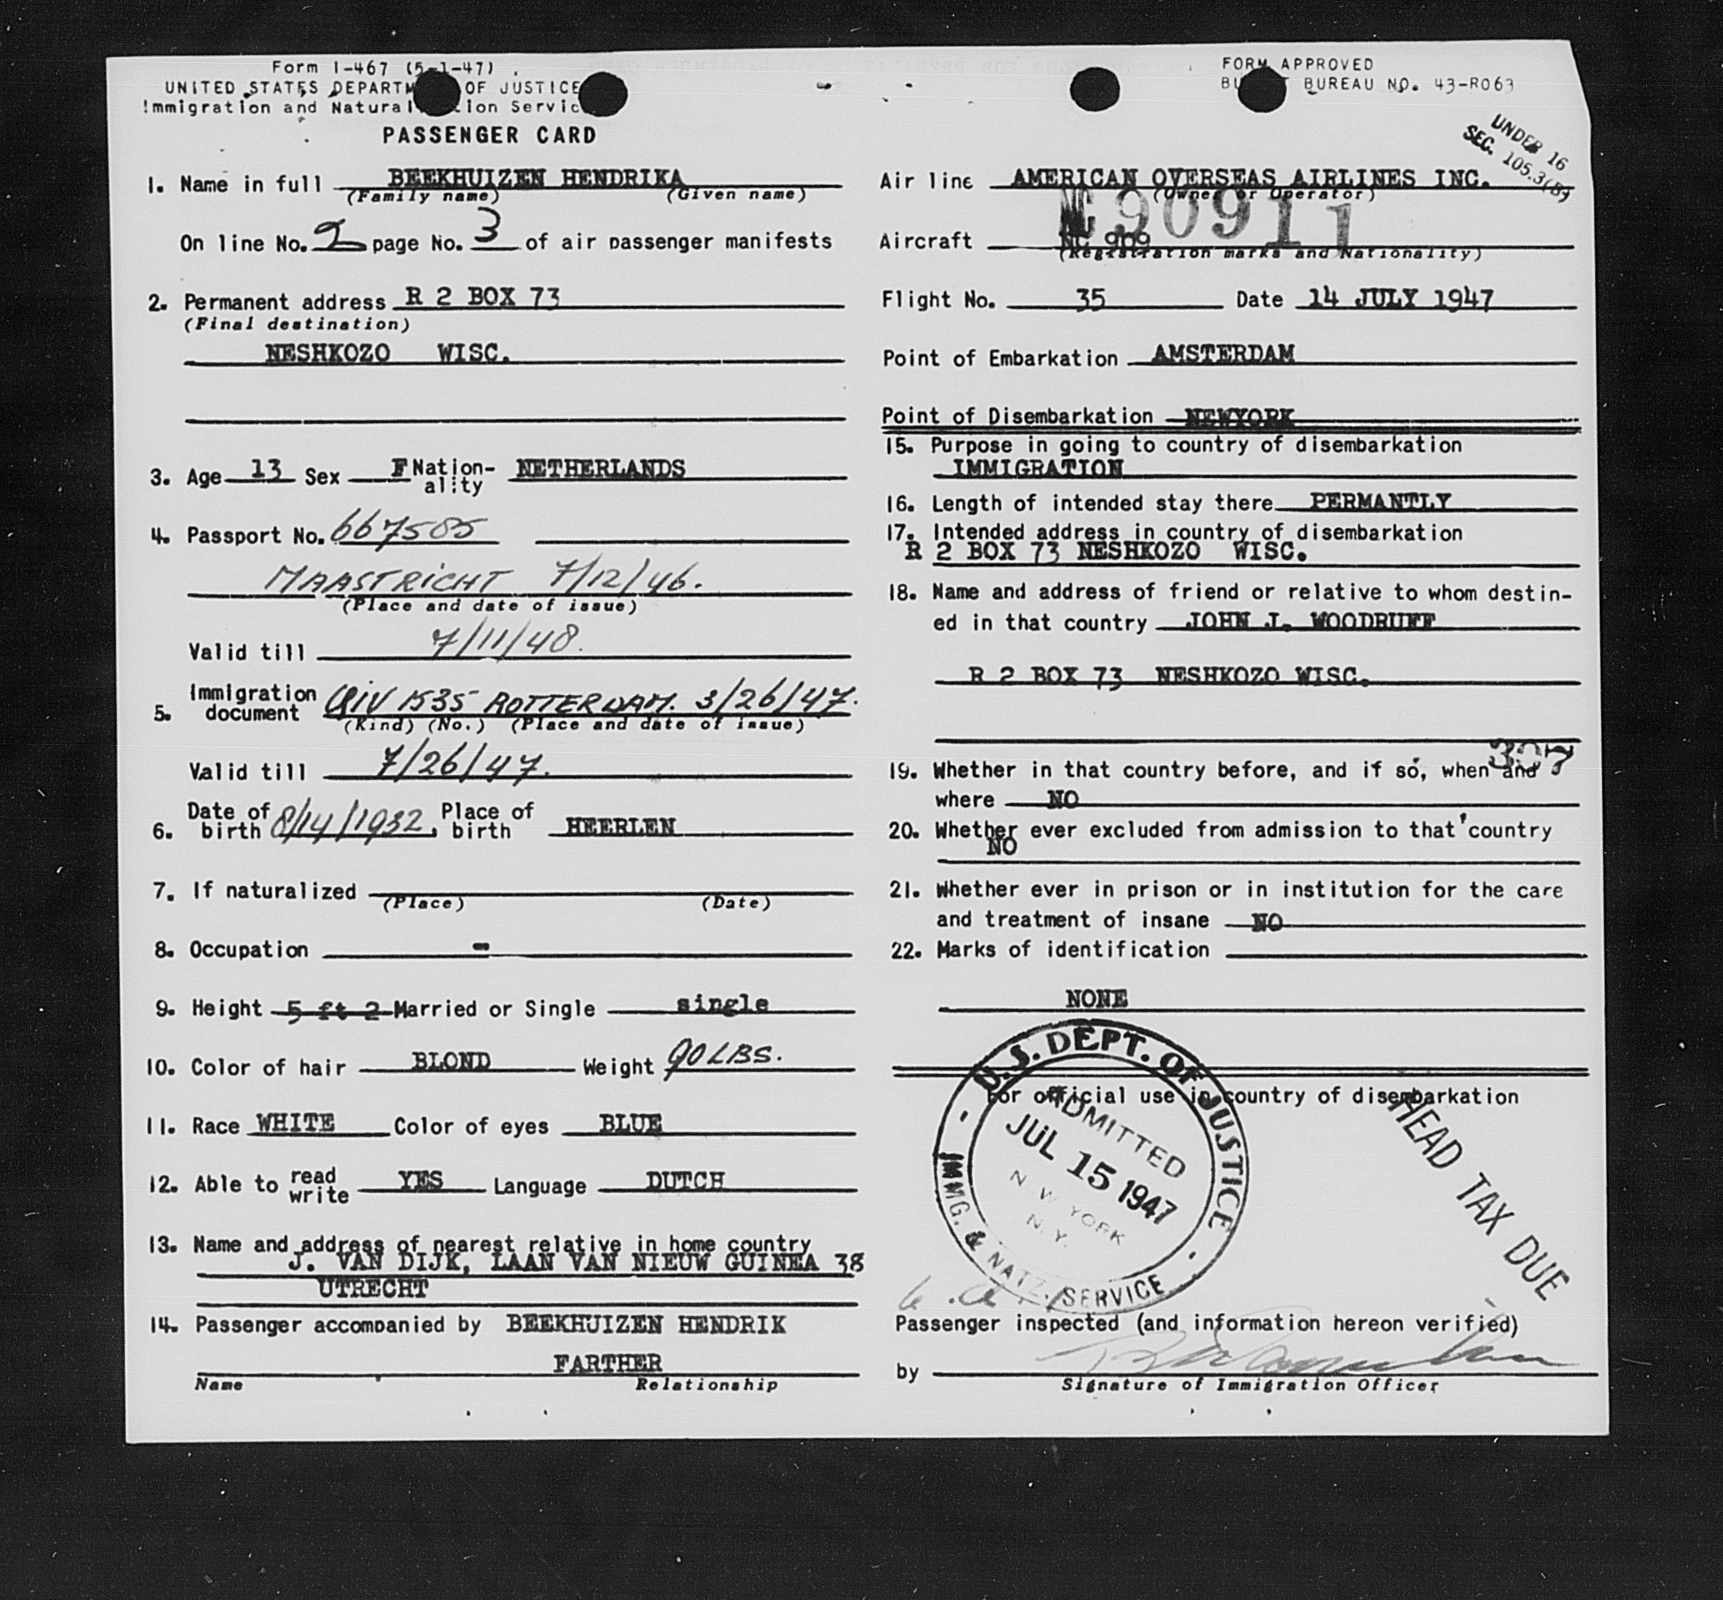 Form I-467 (5-1-47)
UNITED STATES DEPARTM OF JUSTICE
Immigration and Natural tion Servic
PASSENGER CARD
1. Name in full BEEKHUIZEN HENDRIKA
(Family name) (Given name)
On line No. 2 page No. 3 of air passenger manifests
2. Permanent address R 2 BOX 73
(Final destination)
NESHKOZO WISC.
3. Age 13 Sex F Nation-
ality NETHERLANDS
4. Passport No. 667585
MAASTRICHT 7/12/46.
(Place and date of issue)
Valid till 7/11/48.
5. Immigration
document QIV 1535 ROTTERDAM. 3/26/47.
(Kind) (No.) (Place and date of issue)
Valid till 7/26/47.
6. Date of
birth 8/14/1932. Place of
birth HEERLEN
7. If naturalized
(Place) (Date)
8. Occupation -
9. Height 5 ft 2 Married or Single single
10. Color of hair BLOND Weight 90 LBS.
11. Race WHITE Color of eyes BLUE
12. Able to read
write YES Language DUTCH
13. Name and address of nearest relative in home country
J. VAN DIJK, LAAN VAN NIEUW GUINEA 38
UTRECHT
14. Passenger accompanied by BEEKHUIZEN HENDRIK
FARTHER
Name Relationship
FORM APPROVED
BU T BUREAU NO. 43-R063
UNDER 16
SEC. 105.3(B)
Air line AMERICAN OVERSEAS AIRLINES INC.
(Owner or Operator)
NC 90911
Aircraft NC 909
(Registration marks and Nationality)
Flight No. 35 Date 14 JULY 1947
Point of Embarkation AMSTERDAM
Point of Disembarkation NEWYORK
15. Purpose in going to country of disembarkation
IMMIGRATION
16. Length of intended stay there PERMANTLY
17. Intended address in country of disembarkation
R 2 BOX 73 NESHKOZO WISC.
18. Name and address of friend or relative to whom destin-
ed in that country JOHN J. WOODRUFF
R 2 BOX 73 NESHKOZO WISC.
19. Whether in that country before, and if so, when and
where NO
20. Whether ever excluded from admission to that country
NO
21. Whether ever in prison or in institution for the care
and treatment of insane NO
22. Marks of identification
NONE
For official use in country of disembarkation
U.S. DEPT. OF JUSTICE
ADMITTED
JUL 15 1947
N W YORK
N. Y.
IMMG. & NATZ. SERVICE
HEAD TAX DUE
Passenger inspected (and information hereon verified)
by
Signature of Immigration Officer